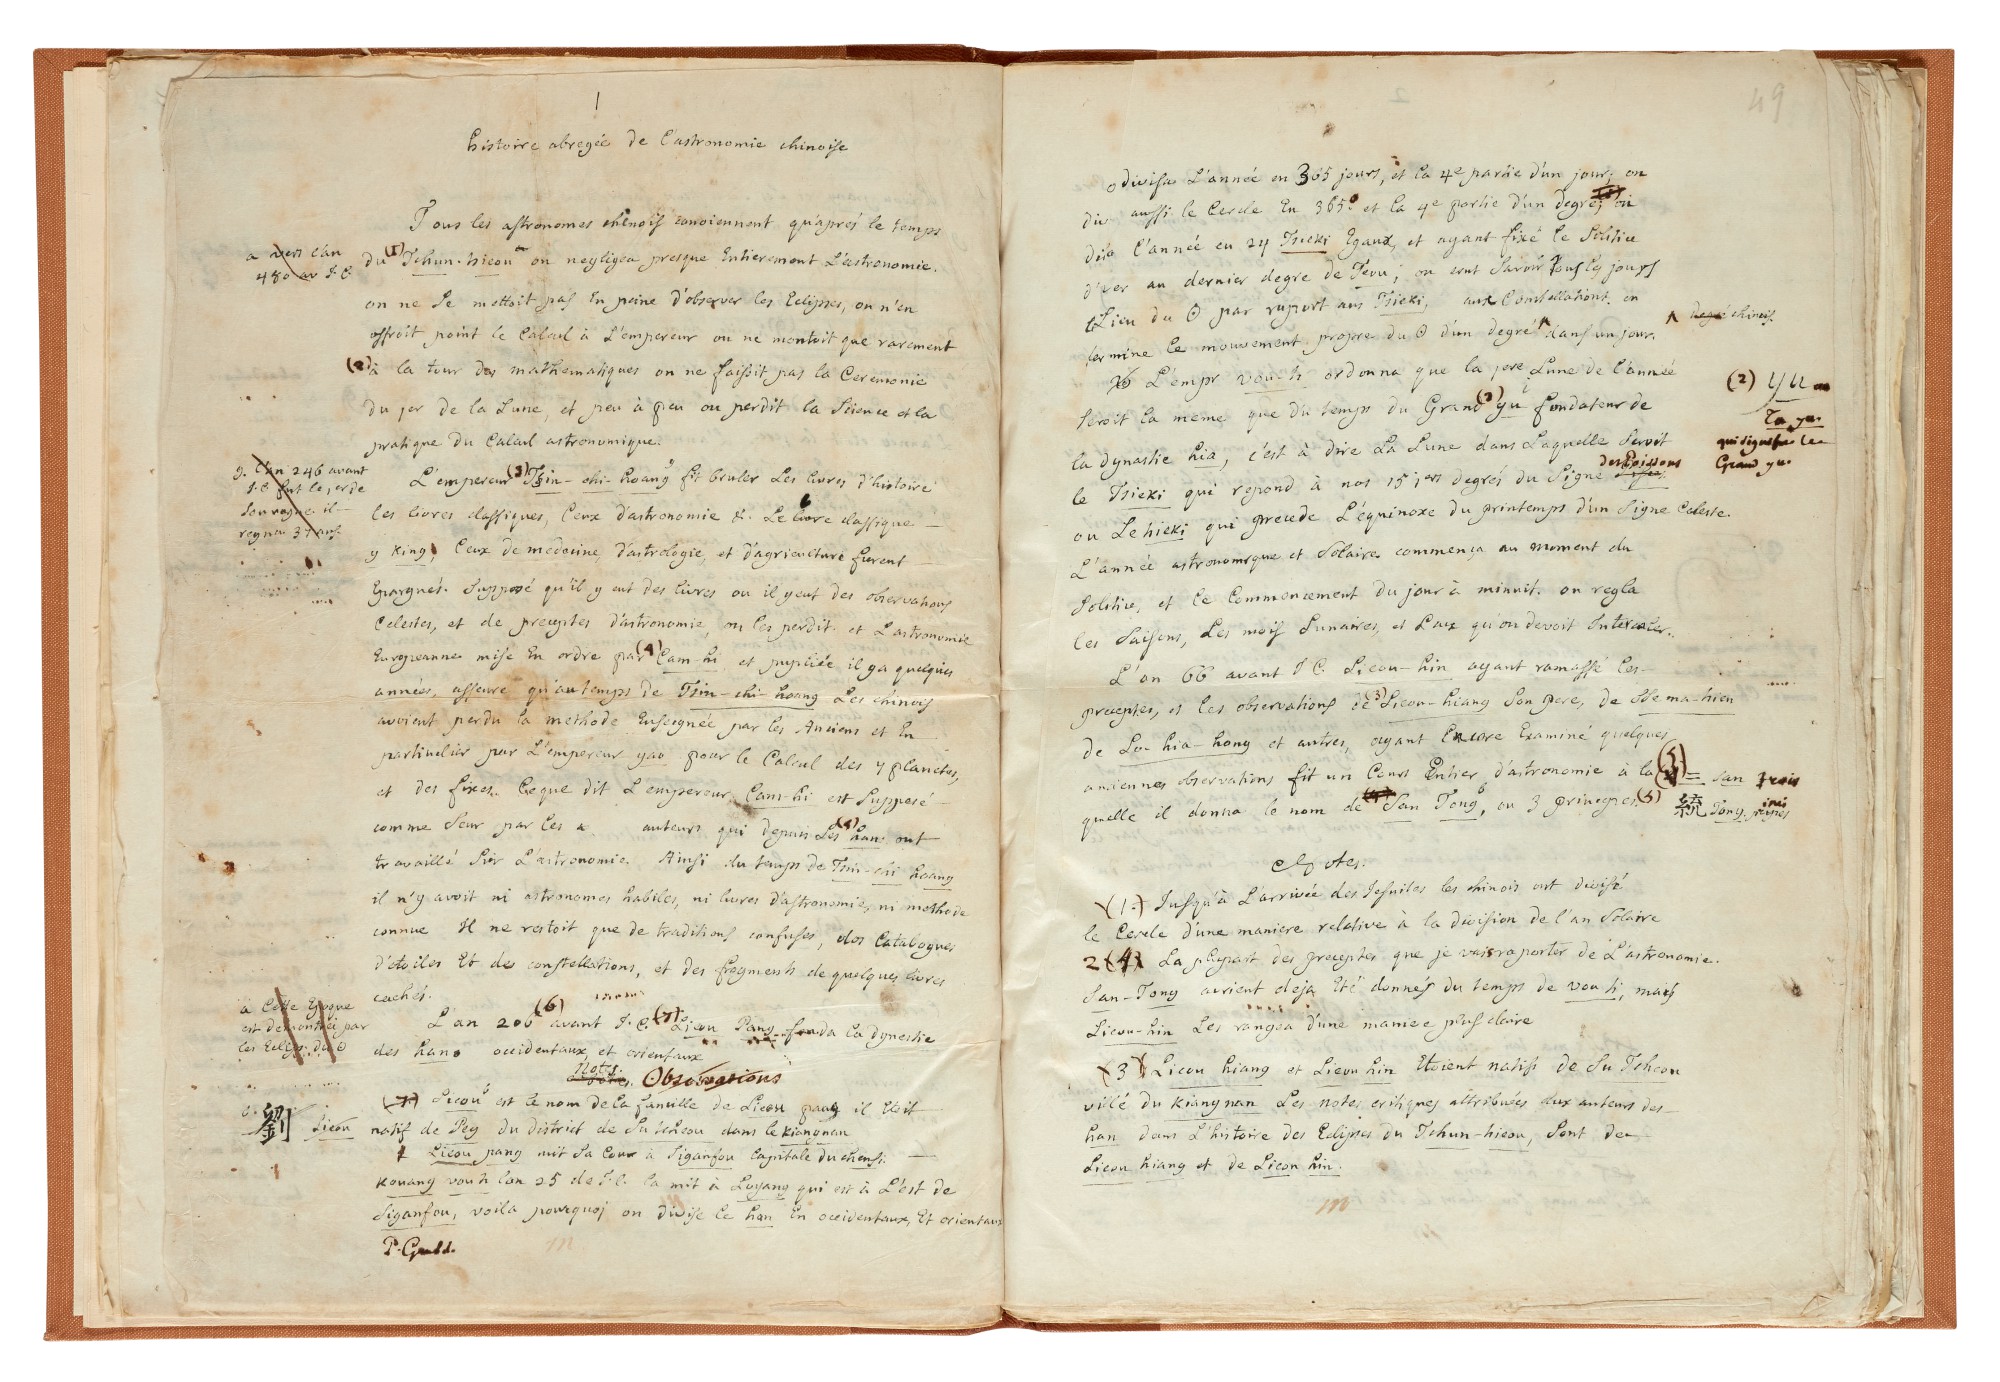 1
histoire abregée de l'astronomie chinoise
Tous les astronomes chinois conviennent qu'aprés le temps
a vers l'an
480 av J. C.
du (1) Tchun-tsieou a on negligea presque Entierement L'astronomie.
on ne se mettoit pas En peine d'observer les Eclipses, on n'en
offroit point le Calcul à L'empereur on ne montoit que rarement
(2) à la tour des mathematiques on ne faisoit pas la Ceremonie
du 1er de la Lune, et peu à peu on perdit la Science et la
pratique du Calcul astronomique.
g. L'an 246 avant
J.C fut le 1er de
son regne il
regna 37 ans.
L'empereur (3) Tsin-chi-hoang g fit bruler Les livres d'histoire
les livres classiques, Ceux d'astronomie &. Le livre classique
y King, Ceux de medecine, d'astrologie, et d'agriculture furent
Epargnés. Supposé qu'il y eut des livres ou il y eut des observations
Celestes, et de preceptes d'astronomie, on les perdit. et L'astronomie
Européanne mise En ordre par (4) Cam-hi et pupliée il y a quelques
années, asseure qu'au temps de Tsin-chi-hoang Les chinois
avoient perdu la methode Enseignée par les Anciens et En
particulier par L'empereur yao pour le Calcul des 7 planetes,
et des fixes. Ce que dit L'empereur Cam-hi est Supposé
comme Seur par les auteurs qui depuis Les (5) han ont
travaillé Sur L'astronomie. Ainsi du temps de Tsin-chi hoang
il n'y avoit ni astronomes habiles, ni livres d'astronomie, ni methode
connue Il ne restoit que de traditions confuses, des Catalogues
d'etoiles Et des constellations, et des fragments de quelques livres
cachés.
à Cette Epoque
est demontrée par
les Eclipses du ☉
L'an 206 (6) avant J.C. (7) Lieou Pang fonda la dynastie
des han occidentaux, et orientaux
Notes. Observations
劉 Lieou
(7) Lieou b est le nom de la famille de Lieou pang il Etoit
natif de Pey du district de Su tcheou dans le Kiangnan
Lieou pang mit Sa Cour à Siganfou Capitale du chensi.
Kouang vou h l'an 25 de J.C. la mit à Loyang qui est à L'est de
Siganfou, voila pourquoi on divise le han En occidentaux, Et orientaux
P. Gaubil.
49
odivisa L'année en 365 jours, et la 4e partie d'un jour; on
div aussi le Cercle En 365° et la 4e partie d'un degré; on
divisa L'année en 24 Tsieki Egaux, et ayant fixé le Solstice
d'iver au dernier degre de Teou; on crut Savoir tous les jours
le Lieu du ☉ par raport aux Tsieki, aux Constellations. on
determine le mouvement propre du ☉ d'un degré ^ dans un jour.
^ chinois.
L'empr vou-h ordonna que la 1ere Lune de L'année
Seroit la meme que du temps du Grand (2) yu fondateur de
(2) yu ou
Ta yu.
qui signifie le
Grand yu.
la dynastie hia, c'est à dire La Lune dans Laquelle Seroit
le Tsieki qui repond à nos 15 1ers degrés du Signe des Poissons
ou Le tsieki qui precede L'équinoxe du printemps d'un Signe Celeste.
L'année astronomique et Solaire commença au moment du
Solstice, et le Commencement du jour à minuit. on regla
les Saisons, Les mois Lunaires, et Ceux qu'on devoit Intercaler.
L'an 66 avant J C. Lieou-hin ayant ramassé les
preceptes, et les observations de (3) Lieou-hiang Son pere, de Sse ma-tsien
de Lo-hia-hong et autres, ayant Encore Examiné quelques
anciennes observations fit un Cours Entier d'astronomie à la
quelle il donna le nom de San Tong b, ou 3 principes (5)
三 San Trois
統 Tong principes
Notes.
(1.) Jusqu'à L'arrivée des Jesuites les chinois ont divisé
le Cercle d'une maniere relative à la division de l'an Solaire
2 (4) La plupart des preceptes que je vais raporter de L'astronomie.
San-Tong avient deja Eté donnés du temps de vou h, mais
Lieou-hin Les rangea d'une maniere plus claire
(3) Lieou hiang et Lieou hin Etoient natifs de Su Tcheou
ville du Kiangnan Les notes critiques attribuées aux auteurs des
han dans L'histoire des Eclipses du Tchun-tsieou, Sont de
Lieou hiang et de Lieou hin.